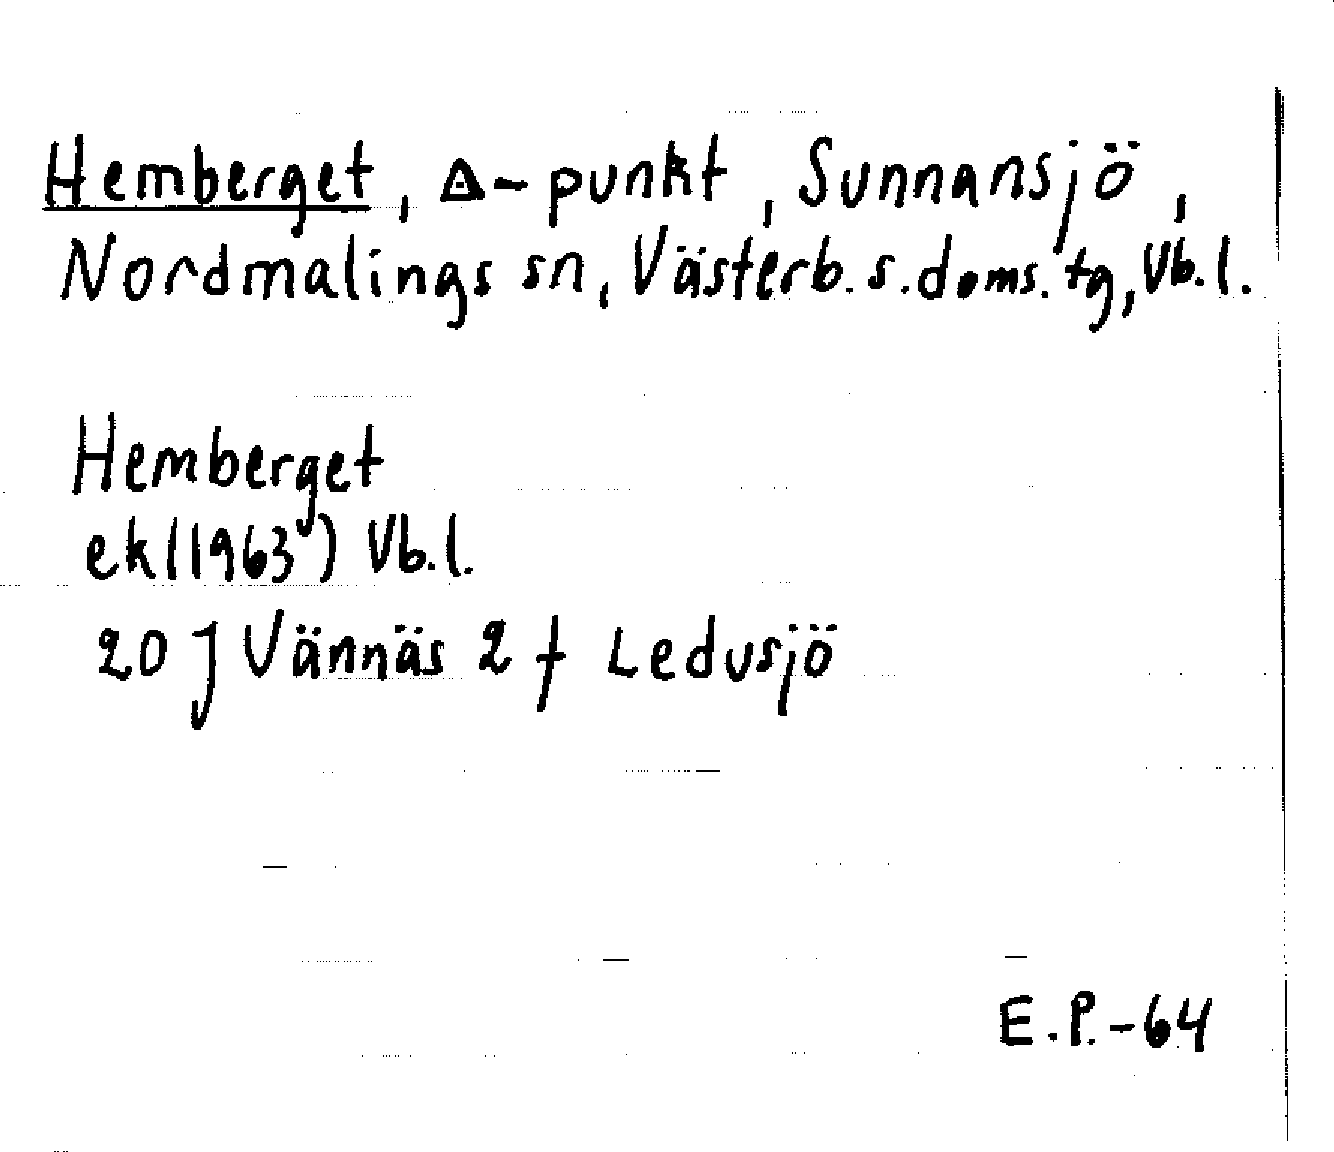 Hemberget, Δ-punkt, Sunnansjö,
Nordmalings sn, Västerb. s. doms. tg, Vb. l.
Hemberget
ek (1963) Vb. l.
20 J Vännäs 2 f Ledusjö
E.P.-64